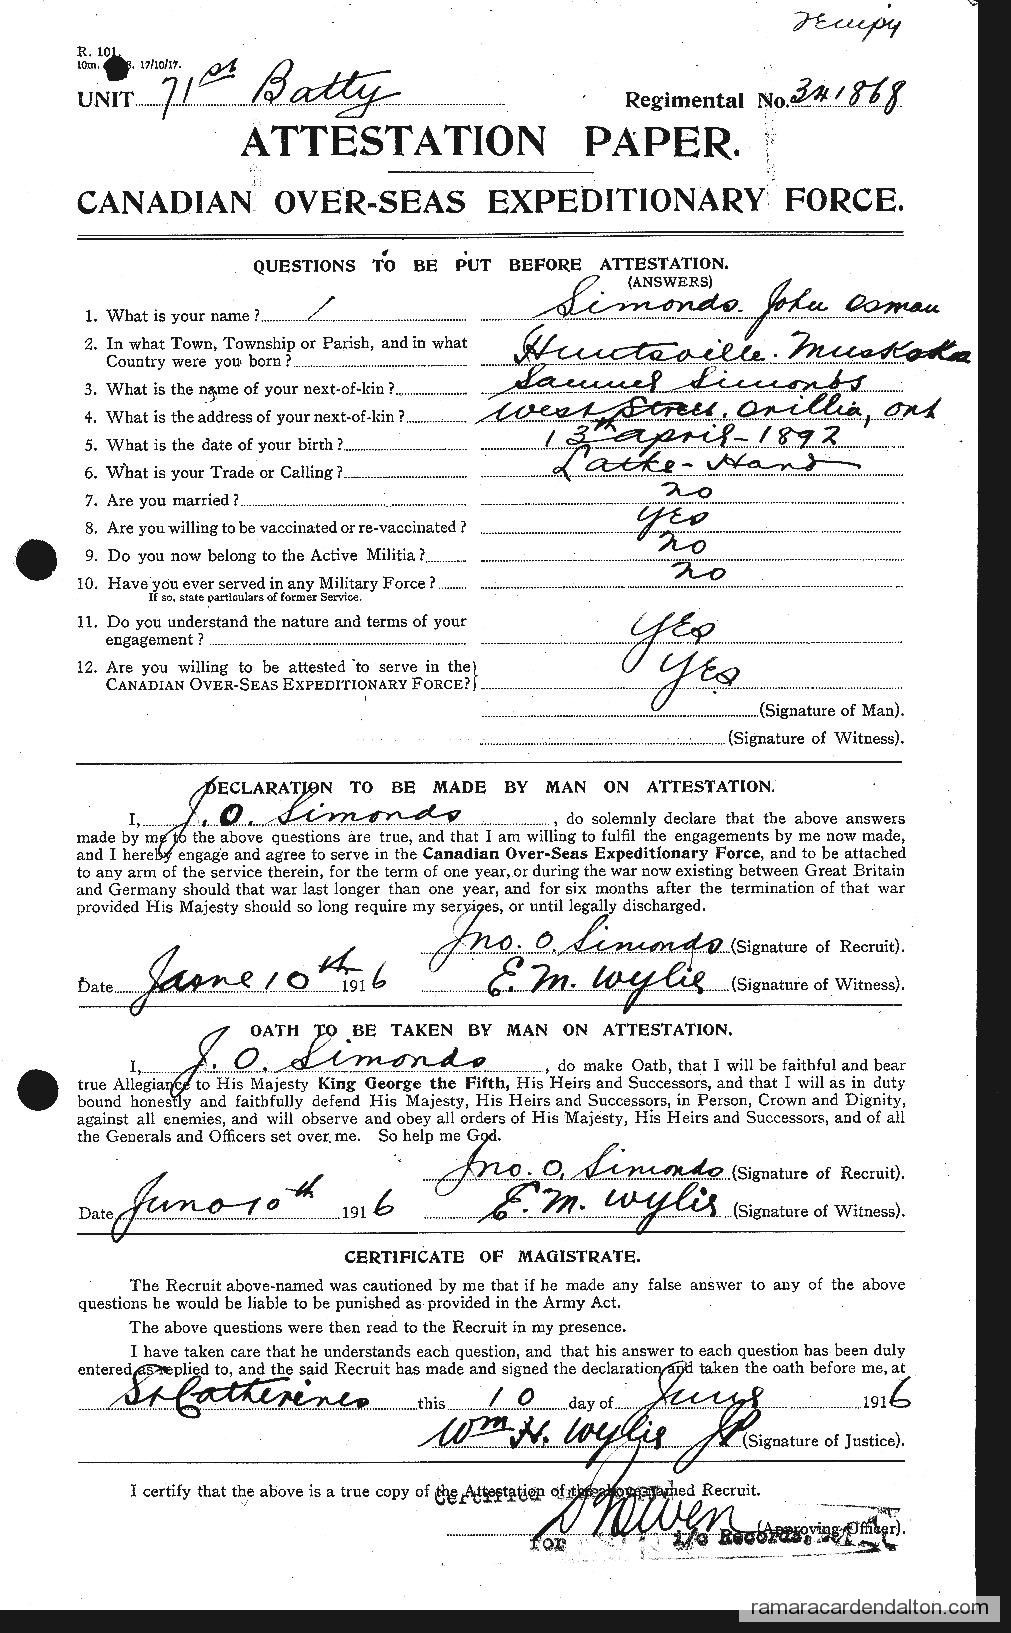 R. 101.
10m. 17/10/17.
UNIT 71st Batty
Regimental No. 341868
ATTESTATION PAPER.
CANADIAN OVER-SEAS EXPEDITIONARY FORCE.
QUESTIONS TO BE PUT BEFORE ATTESTATION.
(ANSWERS)
1. What is your name? Simonds. John Osman
2. In what Town, Township or Parish, and in what
Country were you born? Huntsville. Muskoka
3. What is the name of your next-of-kin? Samuel Simonds
4. What is the address of your next-of-kin? West Street, Orillia, Ont
5. What is the date of your birth? 13th April - 1892
6. What is your Trade or Calling? Lathe-Hand
7. Are you married? no
8. Are you willing to be vaccinated or re-vaccinated? Yes
9. Do you now belong to the Active Militia? no
10. Have you ever served in any Military Force? no
If so, state particulars of former Service.
11. Do you understand the nature and terms of your
engagement? Yes
12. Are you willing to be attested to serve in the
CANADIAN OVER-SEAS EXPEDITIONARY FORCE? Yes
(Signature of Man).
(Signature of Witness).
DECLARATION TO BE MADE BY MAN ON ATTESTATION.
I, J. O. Simonds, do solemnly declare that the above answers
made by me to the above questions are true, and that I am willing to fulfil the engagements by me now made,
and I hereby engage and agree to serve in the Canadian Over-Seas Expeditionary Force, and to be attached
to any arm of the service therein, for the term of one year, or during the war now existing between Great Britain
and Germany should that war last longer than one year, and for six months after the termination of that war
provided His Majesty should so long require my services, or until legally discharged.
Jno. O. Simonds (Signature of Recruit).
Date June 10th 1916 E. M. Wylie (Signature of Witness).
OATH TO BE TAKEN BY MAN ON ATTESTATION.
I, J. O. Simonds, do make Oath, that I will be faithful and bear
true Allegiance to His Majesty King George the Fifth, His Heirs and Successors, and that I will as in duty
bound honestly and faithfully defend His Majesty, His Heirs and Successors, in Person, Crown and Dignity,
against all enemies, and will observe and obey all orders of His Majesty, His Heirs and Successors, and of all
the Generals and Officers set over me. So help me God.
Jno. O. Simonds (Signature of Recruit).
Date June 10th 1916 E. M. Wylie (Signature of Witness).
CERTIFICATE OF MAGISTRATE.
The Recruit above-named was cautioned by me that if he made any false answer to any of the above
questions he would be liable to be punished as provided in the Army Act.
The above questions were then read to the Recruit in my presence.
I have taken care that he understands each question, and that his answer to each question has been duly
entered as replied to, and the said Recruit has made and signed the declaration and taken the oath before me, at
St Catherines this 10 day of June 1916
Wm H. Wylie JP (Signature of Justice).
I certify that the above is a true copy of the Attestation of the above-named Recruit.
Certified
(Approving Officer).
for i/c Records.
ramaracardendalton.com